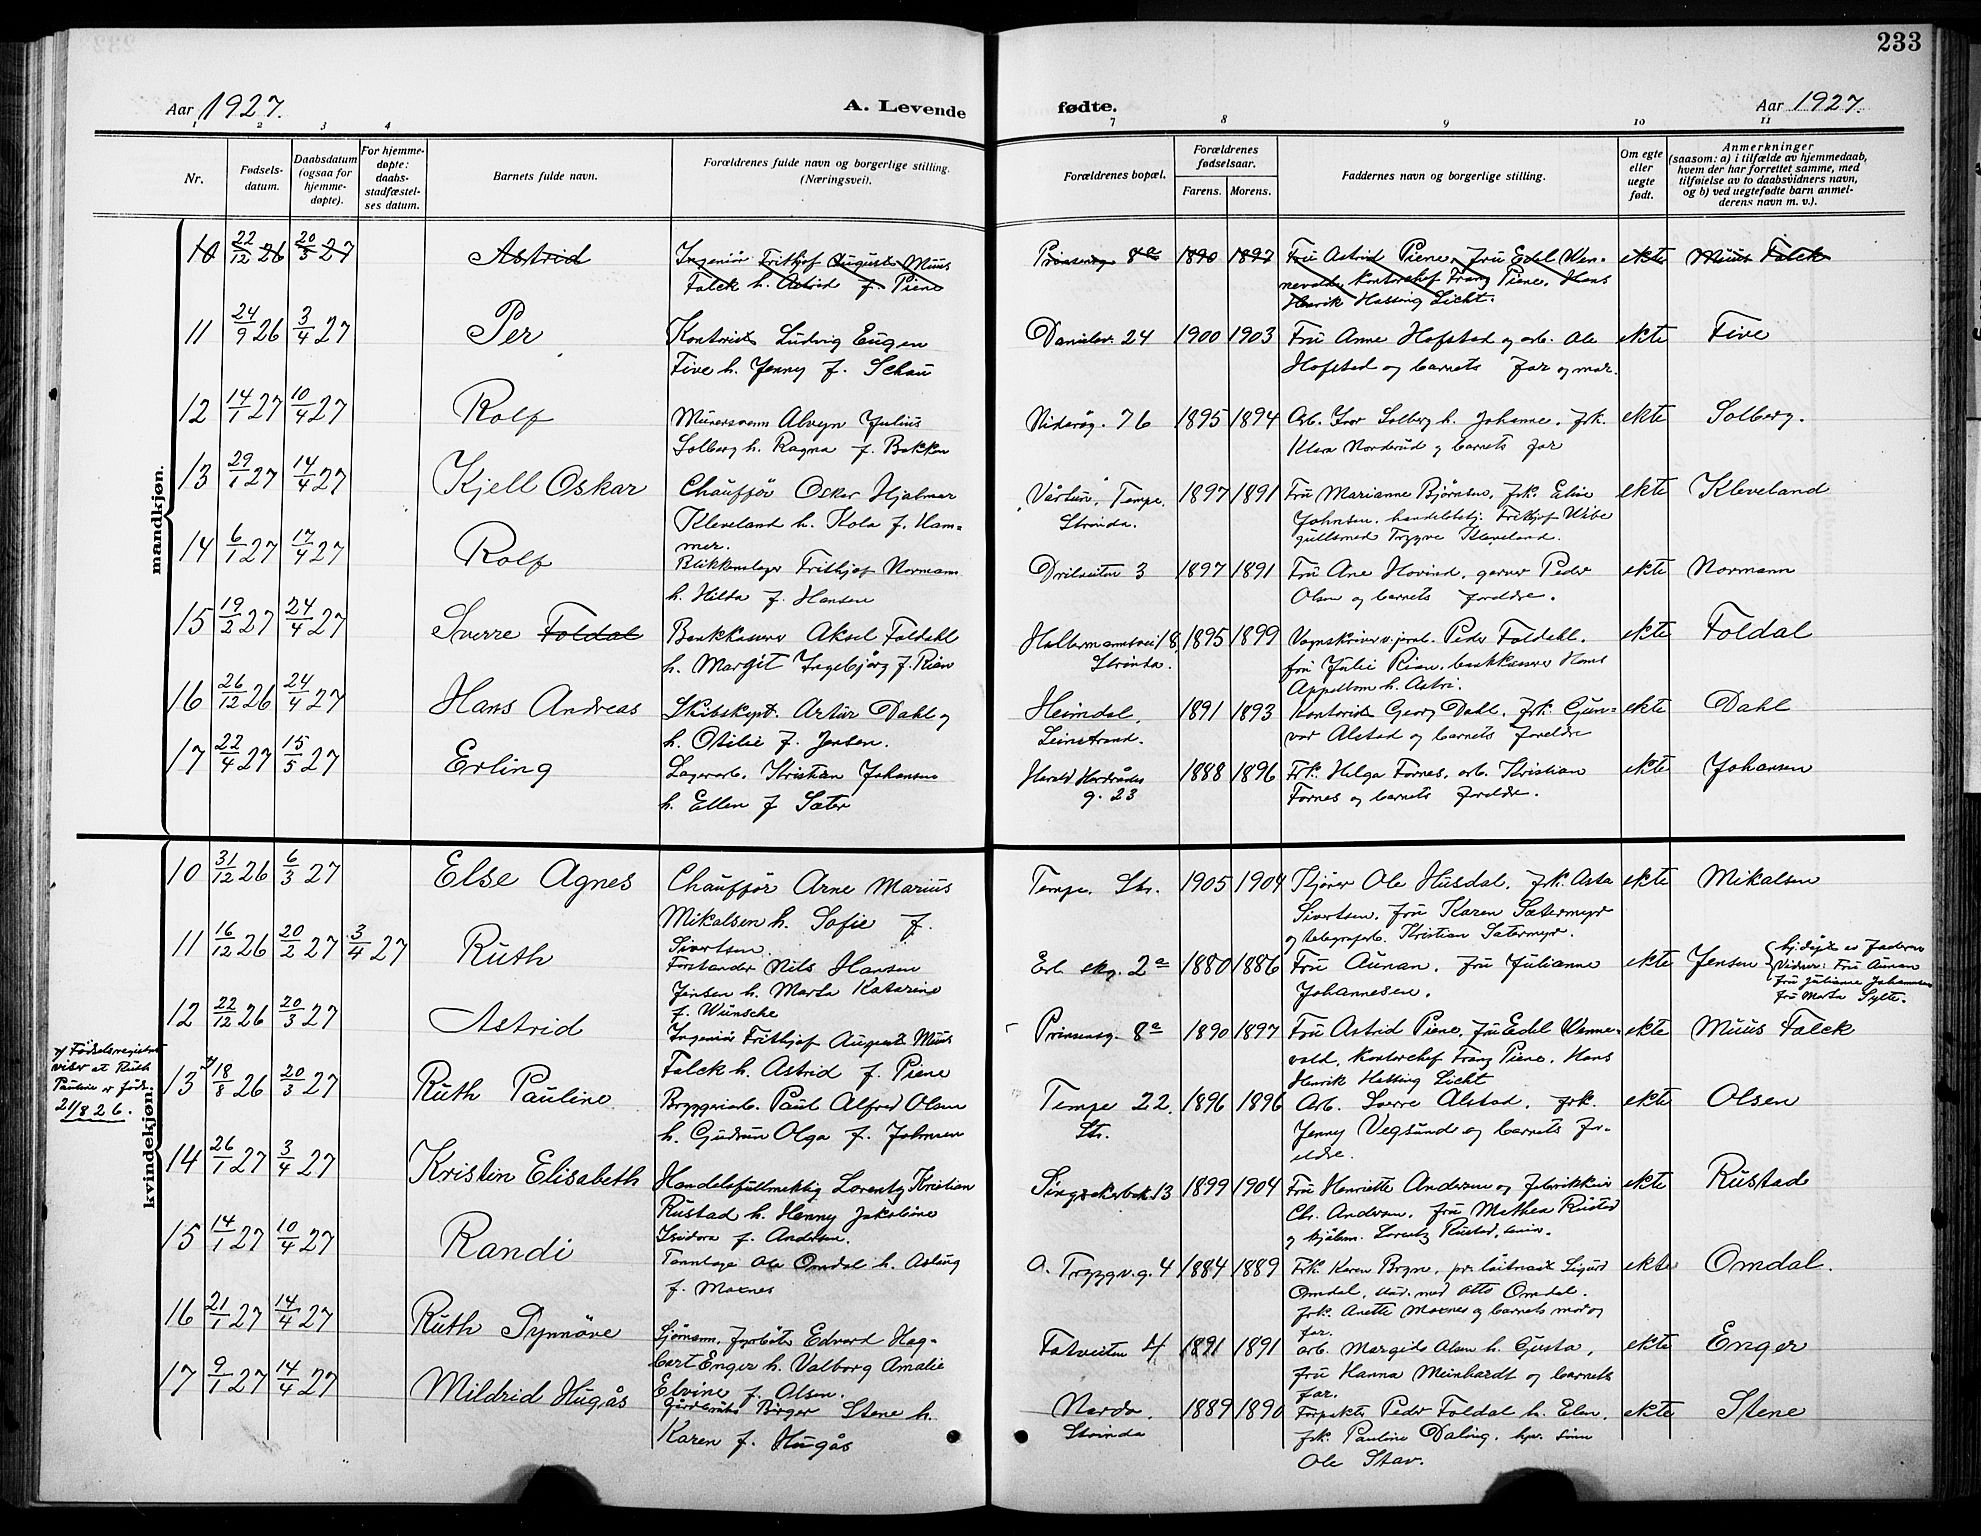 233
Aar 1927.
A. Levende fødte.
Aar 1927.
1 2 3 4 7 8 9 10 11
Nr.
Fødsels-
datum.
Daabsdatum
(ogsaa for
hjemme-
døpte).
For hjemme-
døpte:
daabs-
stadfæstel-
ses datum.
Barnets fulde navn.
Forældrenes fulde navn og borgerlige stilling.
(Næringsvei).
Forældrenes bopæl.
Forældrenes
fødselsaar.
Farens. Morens.
Faddernes navn og borgerlige stilling.
Om egte
eller
uegte
født.
Anmerkninger
(saasom: a) i tilfælde av hjemmedaab,
hvem der har forrettet samme, med
tilføielse av to daabsvidners navn,
og b) ved uegtefødte barn anmel-
derens navn m. v.).
mandkjøn.
10 22/12 26 20/3 27 Astrid
Ingeniør Frithjof August Muus
Falck h. Astrid f. Piene
Prinsensg. 8a 1890 1897
Fru Astrid Piene, fru Edel Wen-
nevold, Kontorchef Franz Piene, Hans
Henrik Hassing Licht.
ekte Muus Falck
11 24/9 26 3/4 27 Per
Kontorist Ludvig Eugen
Five h. Jenny f. Schau
Danielsv. 24 1900 1903
Fru Anne Hofstad og arb. Ole
Hofstad og barnets far og mor.
ekte Five
12 14/1 27 10/4 27 Rolf
Murersvenn Alvyn Julius
Solberg h. Ragna f. Bakken
Nidarög. 76 1895 1894
Arb. Ivar Solberg h. Johanne, frk.
Klara Norderud og barnets far
ekte Solberg.
13 29/1 27 14/4 27 Kjell Oskar
Chauffør Oskar Hjalmar
Kleveland h. Kola f. Ham-
mer.
Vårtun, Tempe, 1897 1891
Strinda.
Fru Marianne Bjørnsen, frk. Elise
Johnsen, handelsbetj. Frithjof Wibe
gullsmed Trygve Kleveland.
ekte Kleveland
14 6/1 27 17/4 27 Rolf
Blikkenslager Frithjof Normann
h. Hilda f. Hansen
Dritveiten 3 1897 1891
Fru Ane Hovind, garver Peder
Olsen og barnets foreldre.
ekte Normann
15 19/2 27 24/4 27 Sverre Foldal
Bankkasserer Aksel Foldahl
h. Margit Ingebjørg f. Rian
Haltermannsvei 18, 1895 1899
Strinda.
Vognskriver v. jernb. Peder Foldahl.
fru Julie Rian, bankkasserer Hans
Appelbom h. Astri.
ekte Foldal
16 26/12 26 24/4 27 Hans Andreas
Skibskapt. Artur Dahl og
h. Otilie f. Jensen.
Heimdal, 1891 1893
Leinstrand.
Kontorist Georg Dahl, frk. Gun-
vor Alstad og barnets foreldre
ekte Dahl
17 22/4 27 15/5 27 Erling
Lagerarb. Kristian Johansen
h. Ellen f Sæter
Harald Hardrådes 1888 1896
g. 23
Frk. Helga Fornes, arb. Kristian
Fornes og barnets foreldre.
ekte Johansen
kvindekjøn.
10 31/12 26 6/3 27 Else Agnes
Chauffør Arne Marius
Mikalsen h. Sofie f.
Sivertsen.
Tempe. Str. 1905 1904
Kjører Ole Husdal, frk. Asta
Sivertsen, fru Karen Sætermyr
og telegrafarb. Kristian Sætermyr.
ekte Mikalsen
11 16/12 26 20/2 27 3/4 27 Ruth
Forstander Nils Hansen
Jensen h. Marta Katarine
f. Wünsche
Erl. skg. 2a 1880 1886
Fru Aunan, fru Julianne
Johannesen.
ekte Jensen
hj.døpt av faderen
Vidner: Fru Aunan
fru Julianne Johannesen
fru Marta Sylte.
12 22/12 26 20/3 27 Astrid
Ingeniør Frithjof August Muus
Falck h. Astrid f. Piene
Prinsensg. 8a 1890 1897
Fru Astrid Piene, fru Edel Wenne-
vold, Kontorchef Franz Piene, Hans
Henrik Hassing Licht
ekte Muus Falck
x/ Fødselsregistret
viser at Ruth
Pauline er født
21/8 26.
13 x/ 18/8 26 20/3 27 Ruth Pauline
Bryggeriarb. Paul Alfred Olsen
h. Gudrun Olga f. Johnsen
Tempe 22. 1896 1896
Str.
Arb. Sverre Alstad, frk.
Jenny Vegsund og barnets for-
eldre.
ekte Olsen
14 26/1 27 3/4 27 Kristin Elisabeth
Handelsfullmektig Lorentz Kristian
Rustad h. Henny Jakobine
Isidora f. Andersen.
Singsakerbak. 13 1899 1904
Fru Henriette Andersen og fabrikkeier
Chr. Andersen, fru Mathea Rustad
og hjulm. Lorentz Rustad, senior.
ekte Rustad
15 14/1 27 10/4 27 Randi
Tannlæge Ole Omdal h. Aslaug
f. Moxnes
O. Tryggv.g. 4 1884 1889
Frk. Karen Bryn, pr. løitnant Sigurd
Omdal, stud. med Otto Omdal.
frk. Anette Moxnes og barnets mor og
far.
ekte Omdal.
16 21/1 27 14/4 27 Ruth Synnöve
Sjömann, fyrbøter Edvard Hag-
bart Enger h. Valborg Amalie
Elvine f. Olsen.
Tatveiten 4 1891 1891
arb. Margido Olsen h. Gusta,
fru Hanna Meinhardt og barnets
far.
ekte Enger
17 9/1 27 14/4 27 Mildrid Hugås
Gårdbruker Birger Stene h.
Karen f. Hugås
Nardo, 1889 1890
Strinda
Forpakter Peder Foldal h. Elen,
frk. Pauline Dalsög,
Ole Stav.
ekte Stene